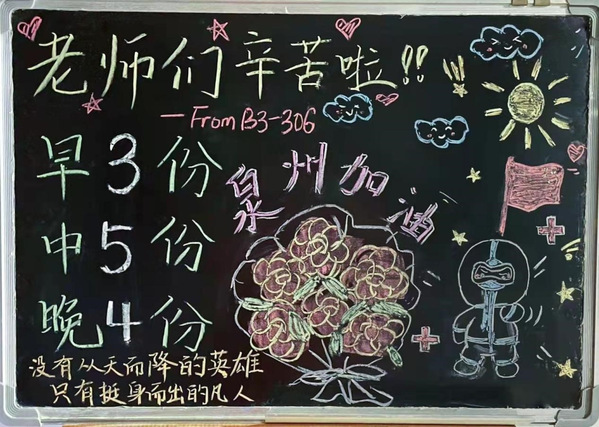 老师们辛苦啦!!
—From B3-306
早3份
中5份
晚4份
泉州加油
没有从天而降的英雄
只有挺身而出的凡人